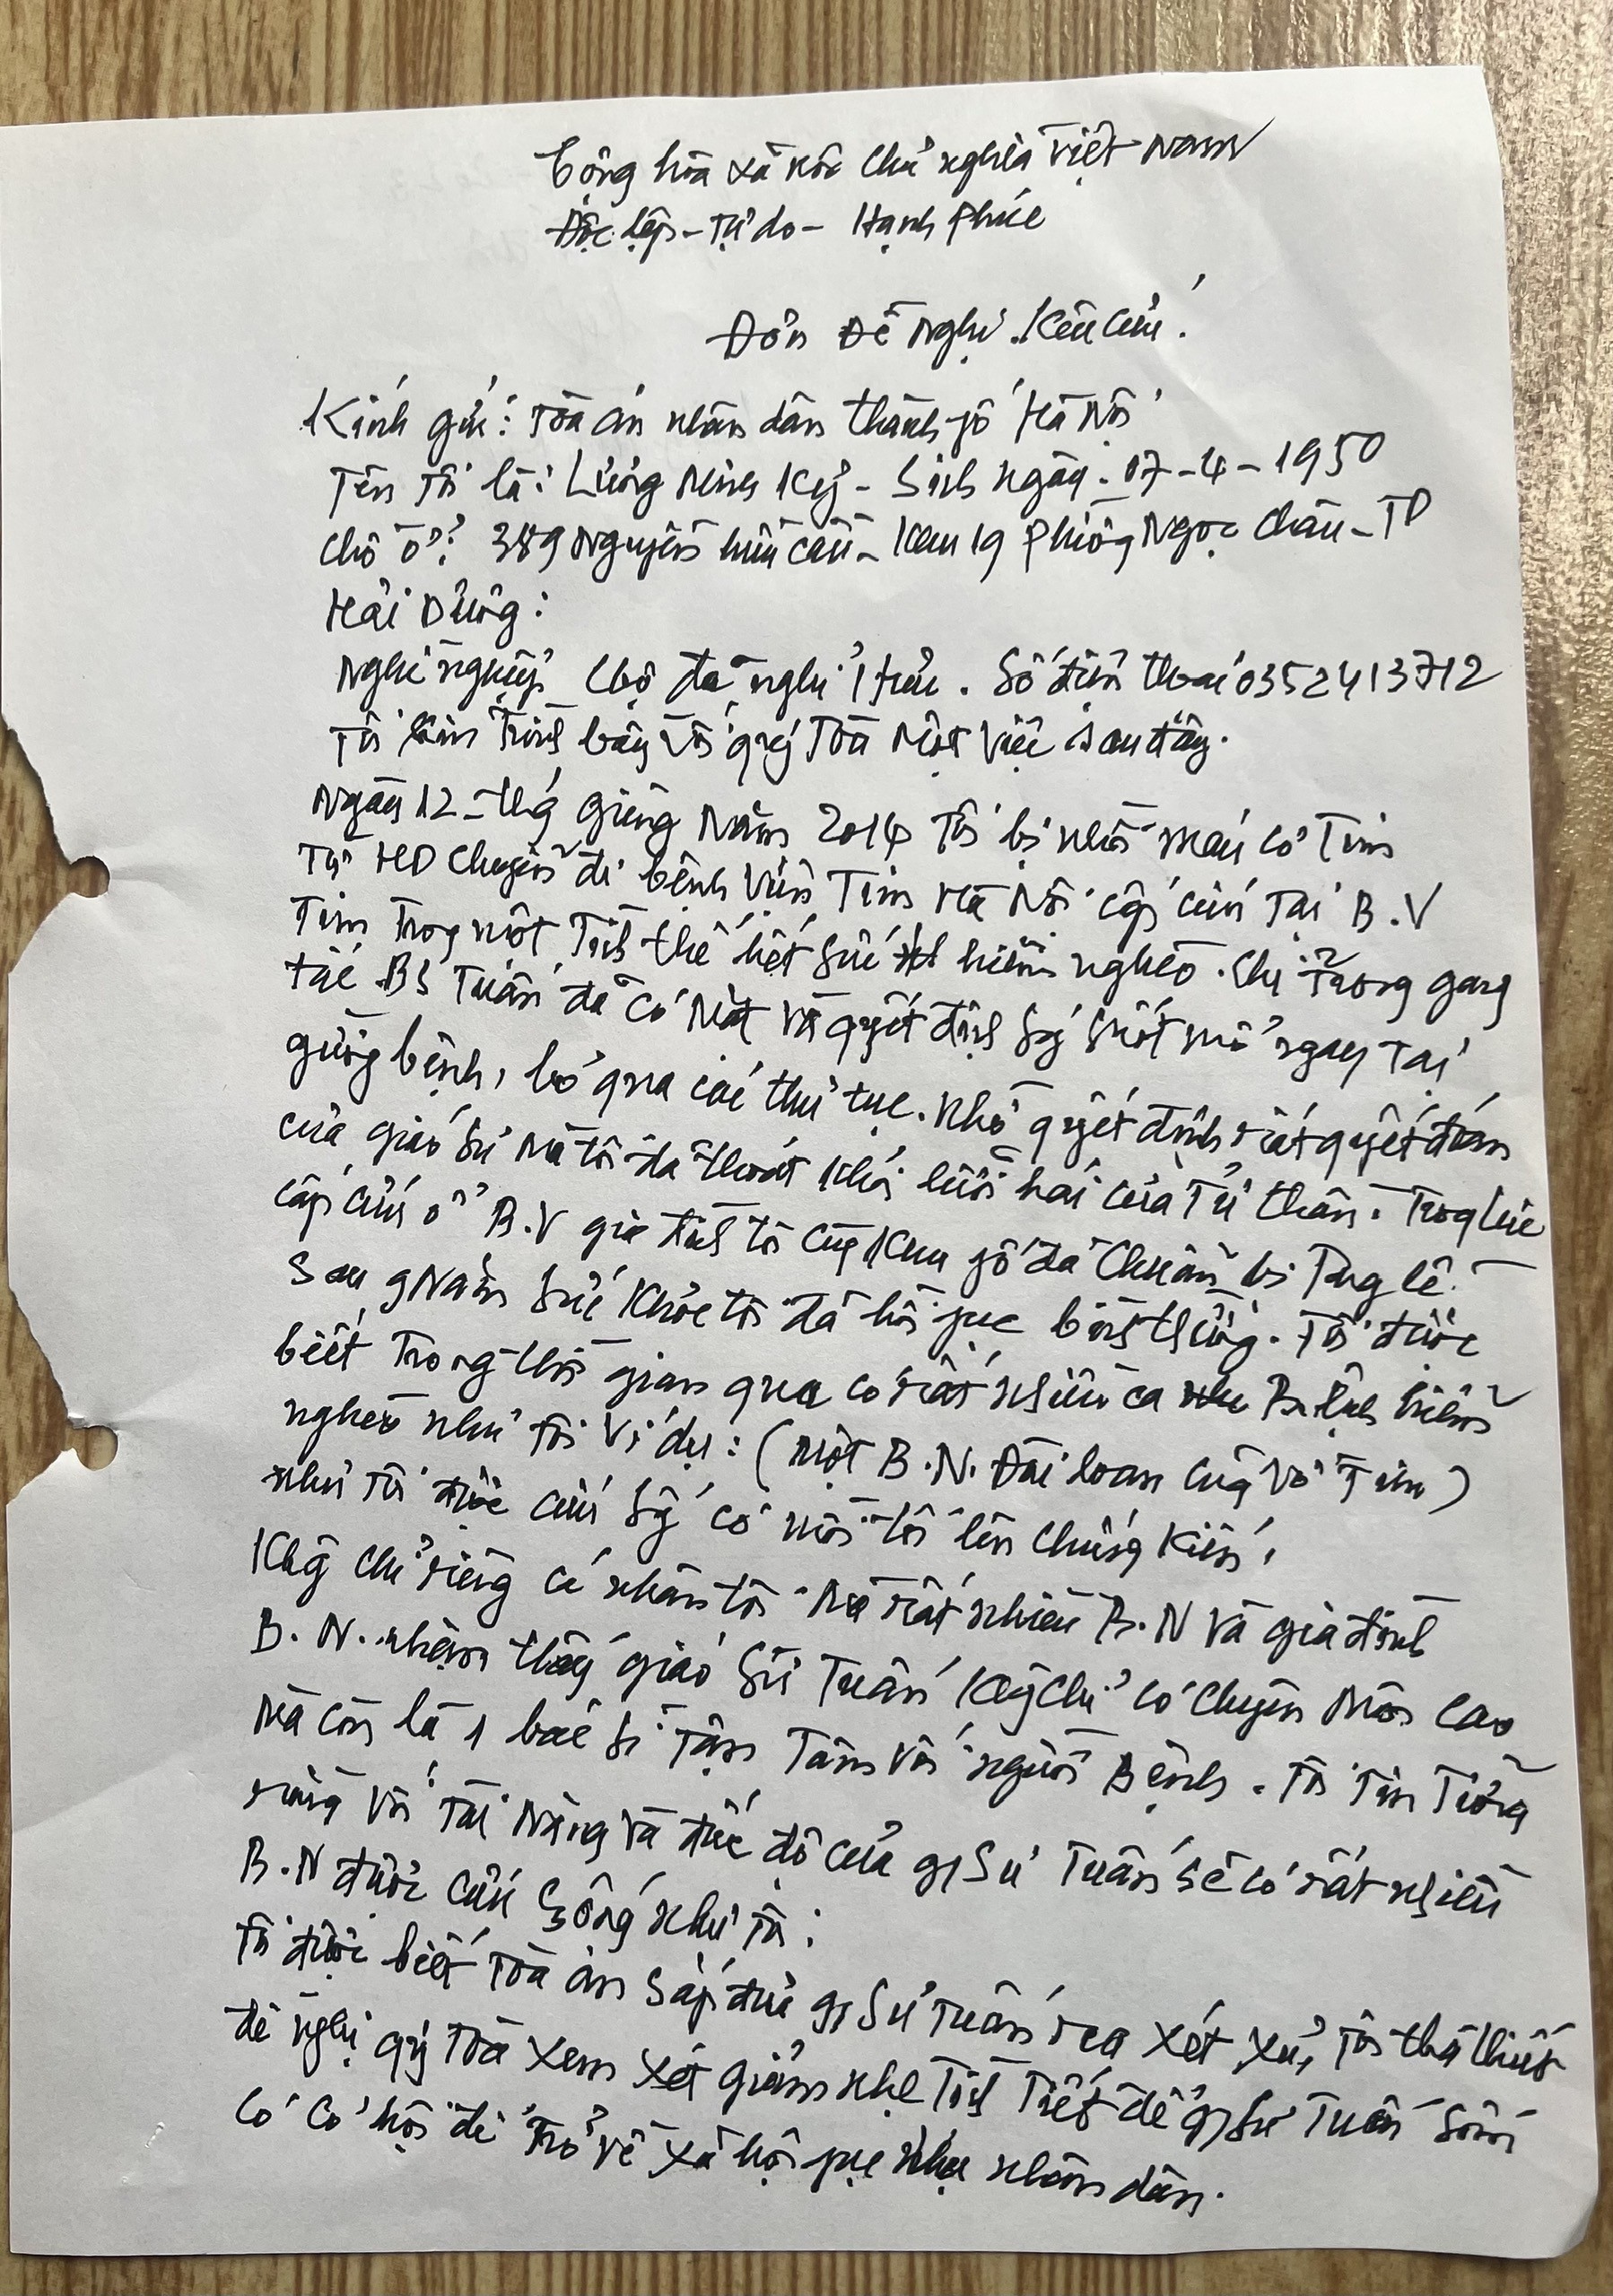 Cộng hòa xã hội chủ nghĩa Việt Nam
Độc lập - Tự do - Hạnh Phúc
Đơn Đề Nghị Kêu Cứu.
Kính gửi: Tòa án nhân dân thành fố Hà Nội
Tên tôi là: Lương Minh Kỳ - Sinh ngày: 07-4-1950
Chỗ ở: 389 Nguyễn hữu Cầu - Khu 19 Phường Ngọc Châu - TP
Hải Dương:
Nghề nghiệp Cbộ đã nghỉ hưu. Số điện thoại 0352413712
Tôi trình bày với quý Tòa Một Việc sau đây.
Ngày 12 - thg giêng Năm 2014 Tôi bị nhồi máu cơ Tim
Từ HD chuyển đi bệnh Viện Tim Hà Nội cấp cứu Tại B.V
Tim Trong một Tình thế hết sức hiểm nghèo. Chỉ Trong gang
tấc BS Tuấn đã có Mặt và quyết định mổ ngay Tại
giường bệnh, bỏ qua các thủ tục. Nhờ quyết định rất quyết đoán
của giáo sư mà tôi đã thoát khỏi lưỡi hái của Tử thần. Trong lúc
cấp cứu ở B.V gia đình tôi cùng Khu fố đã Chuẩn bị Tang lễ.
Sau 9 Năm sức khỏe tôi đã hồi fục bình thường. Tôi được
biết Trong thời gian qua có rất nhiều ca Bệnh hiểm
nghèo như tôi Ví dụ: (Một B.N. Đài loan cũng Vỡ Tim)
như tôi được cứu có mời tôi lên chứng kiến,
Khg chỉ riêng cá nhân tôi Mà rất nhiều B.N và gia đình
B.N. nhận thấy giáo Sư Tuấn Khg chỉ có chuyên Môn cao
Mà còn là 1 bác sĩ Tận Tâm với người Bệnh. Tôi Tin Tưởng
rằng với Tài Năng và đức độ của g/Sư Tuấn sẽ có rất nhiều
B.N được cứu Sống như Tôi:
Tôi được biết Tòa án Sắp đưa g/Sư Tuấn ra xét xử, Tôi tha thiết
đề nghị quý Tòa xem xét giảm nhẹ Tình Tiết để g/Sư Tuấn Sớm
có cơ hội để Trở về xã hội fục vụ nhân dân.